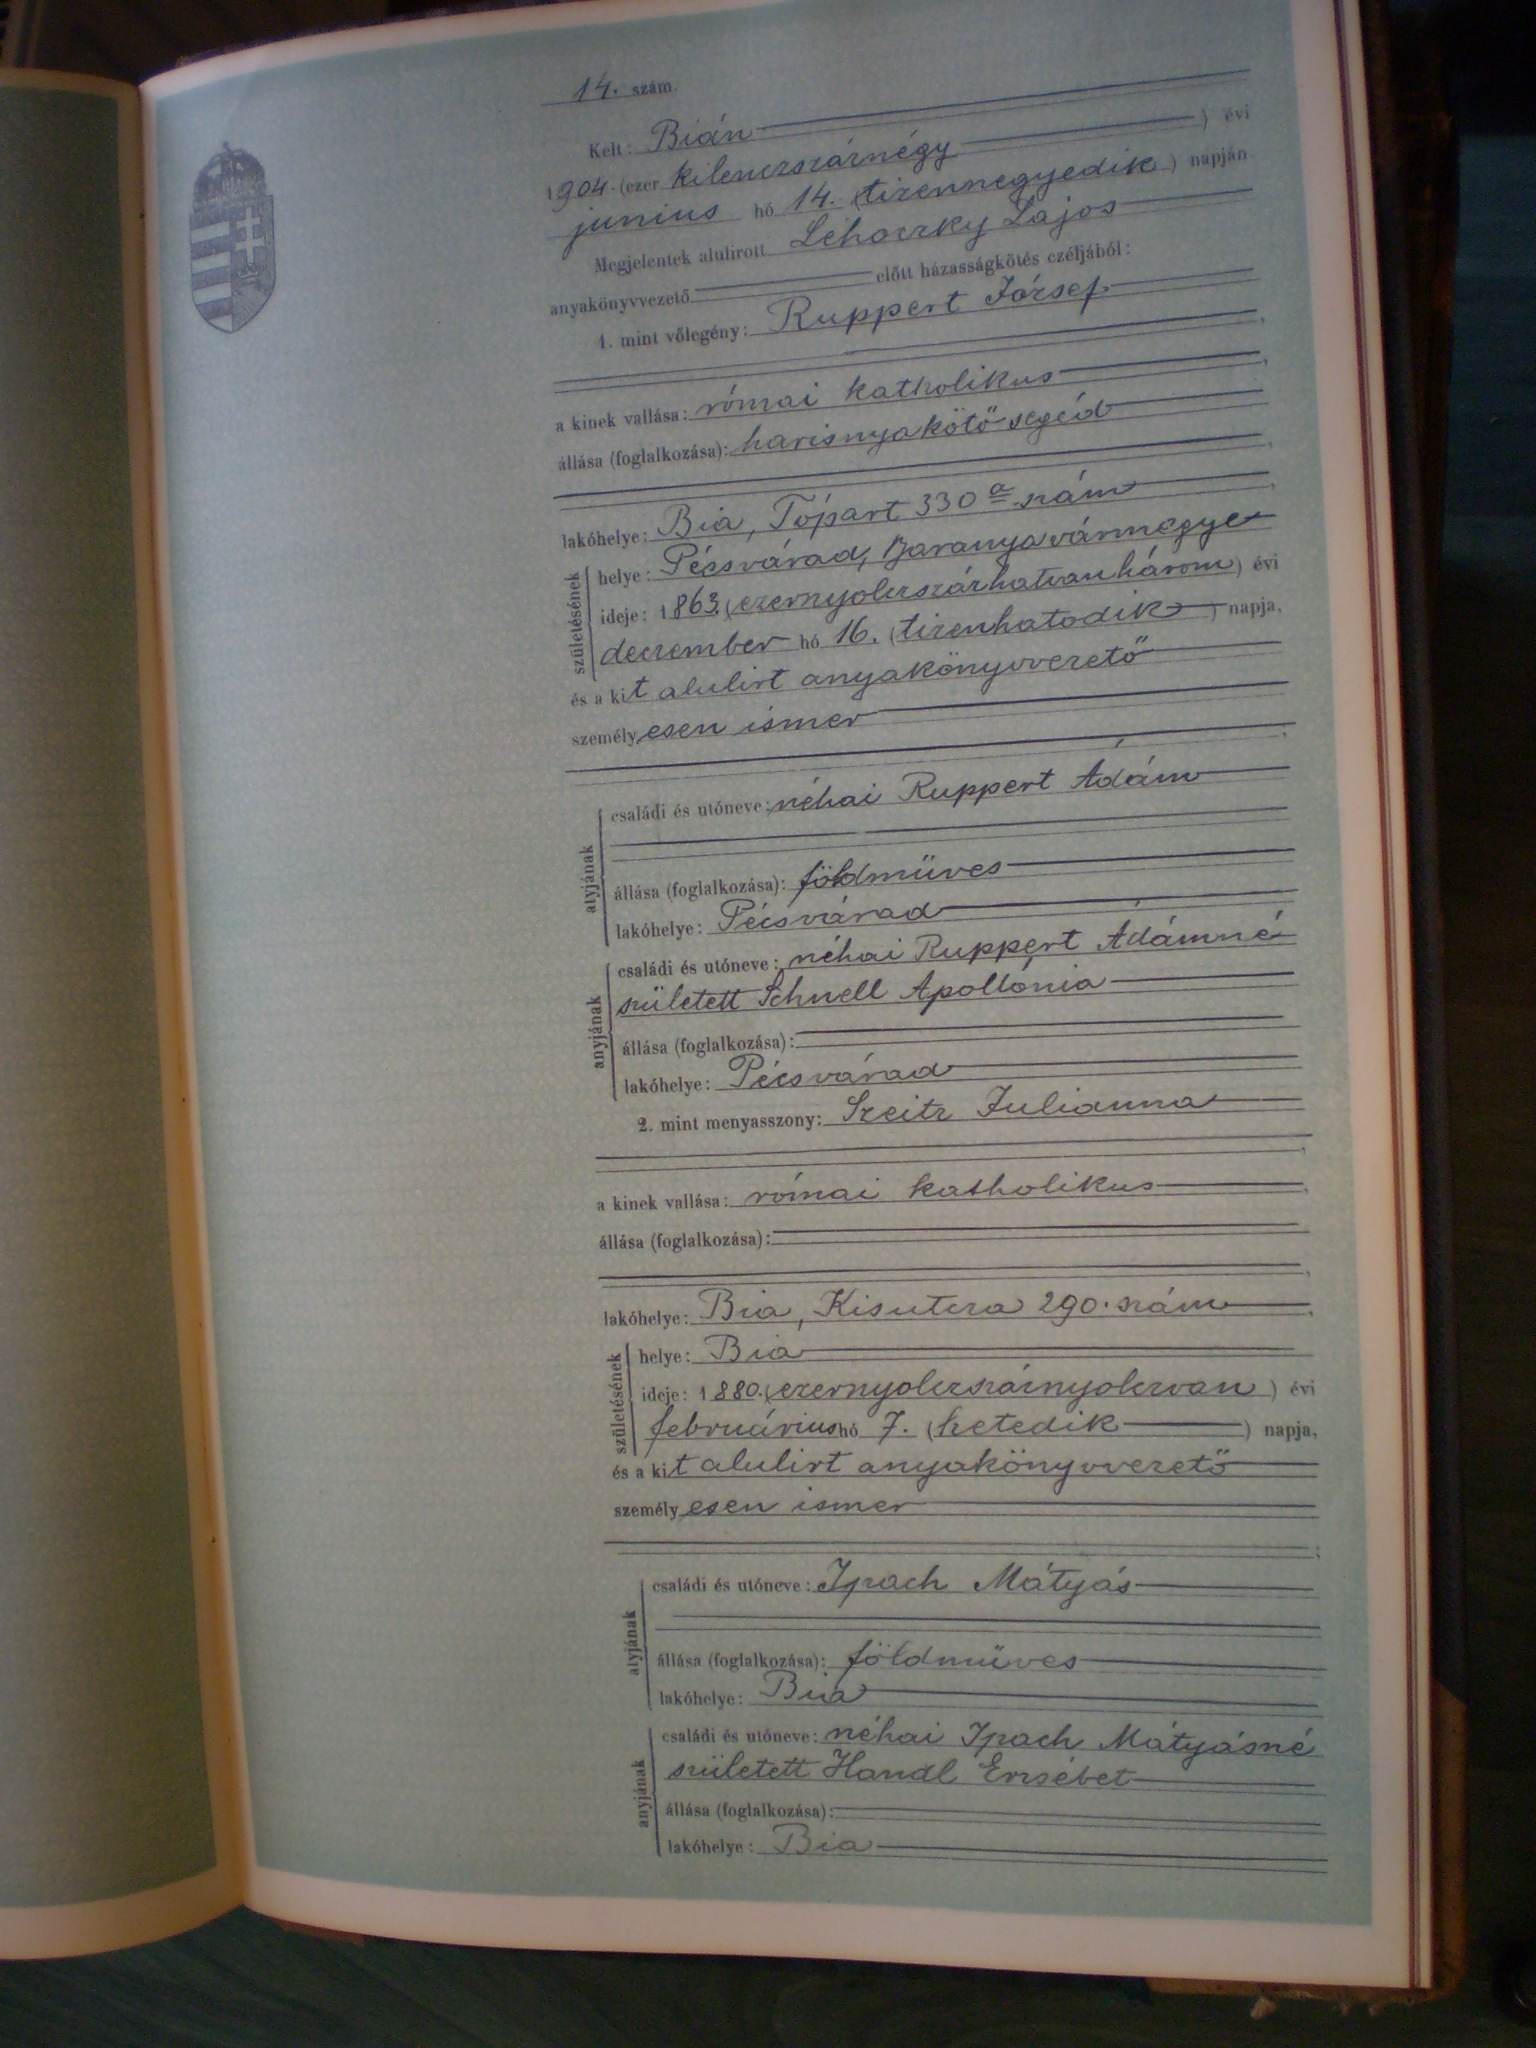 14. szám.
Kelt: Bián
1904. (ezer kilenczszáznégy) évi
junius hó 14. (tizennegyedik) napján
Megjelentek alulirott Lehoczky Lajos
anyakönyvvezető előtt házasságkötés czéljából:
1. mint vőlegény: Ruppert József
a kinek vallása: római katholikus
állása (foglalkozása): harisnyakötő segéd
lakóhelye: Bia, Tópart 330 a szám
születésének
helye: Pécsvárad, Baranyavármegye
ideje: 1863. (ezernyolczszázhatvanhárom) évi
deczember hó 16. (tizenhatodik) napja,
és a kit alulirt anyakönyvvezető
személyesen ismer
atyjának
családi és utóneve: néhai Ruppert Ádám
állása (foglalkozása): földmüves
lakóhelye: Pécsvárad
anyjának
családi és utóneve: néhai Ruppert Ádámné
született Schnell Apollónia
állása (foglalkozása):
lakóhelye: Pécsvárad
2. mint menyasszony: Szeitz Julianna
a kinek vallása: római katholikus
állása (foglalkozása):
lakóhelye: Bia, Kisutcza 290. szám
születésének
helye: Bia
ideje: 1880. (ezernyolczszáznyolczvan) évi
februárius hó 7. (hetedik) napja,
és a kit alulirt anyakönyvvezető
személyesen ismer
atyjának
családi és utóneve: Ipach Mátyás
állása (foglalkozása): földmüves
lakóhelye: Bia
anyjának
családi és utóneve: néhai Ipach Mátyásné
született Handl Erzsébet
állása (foglalkozása):
lakóhelye: Bia